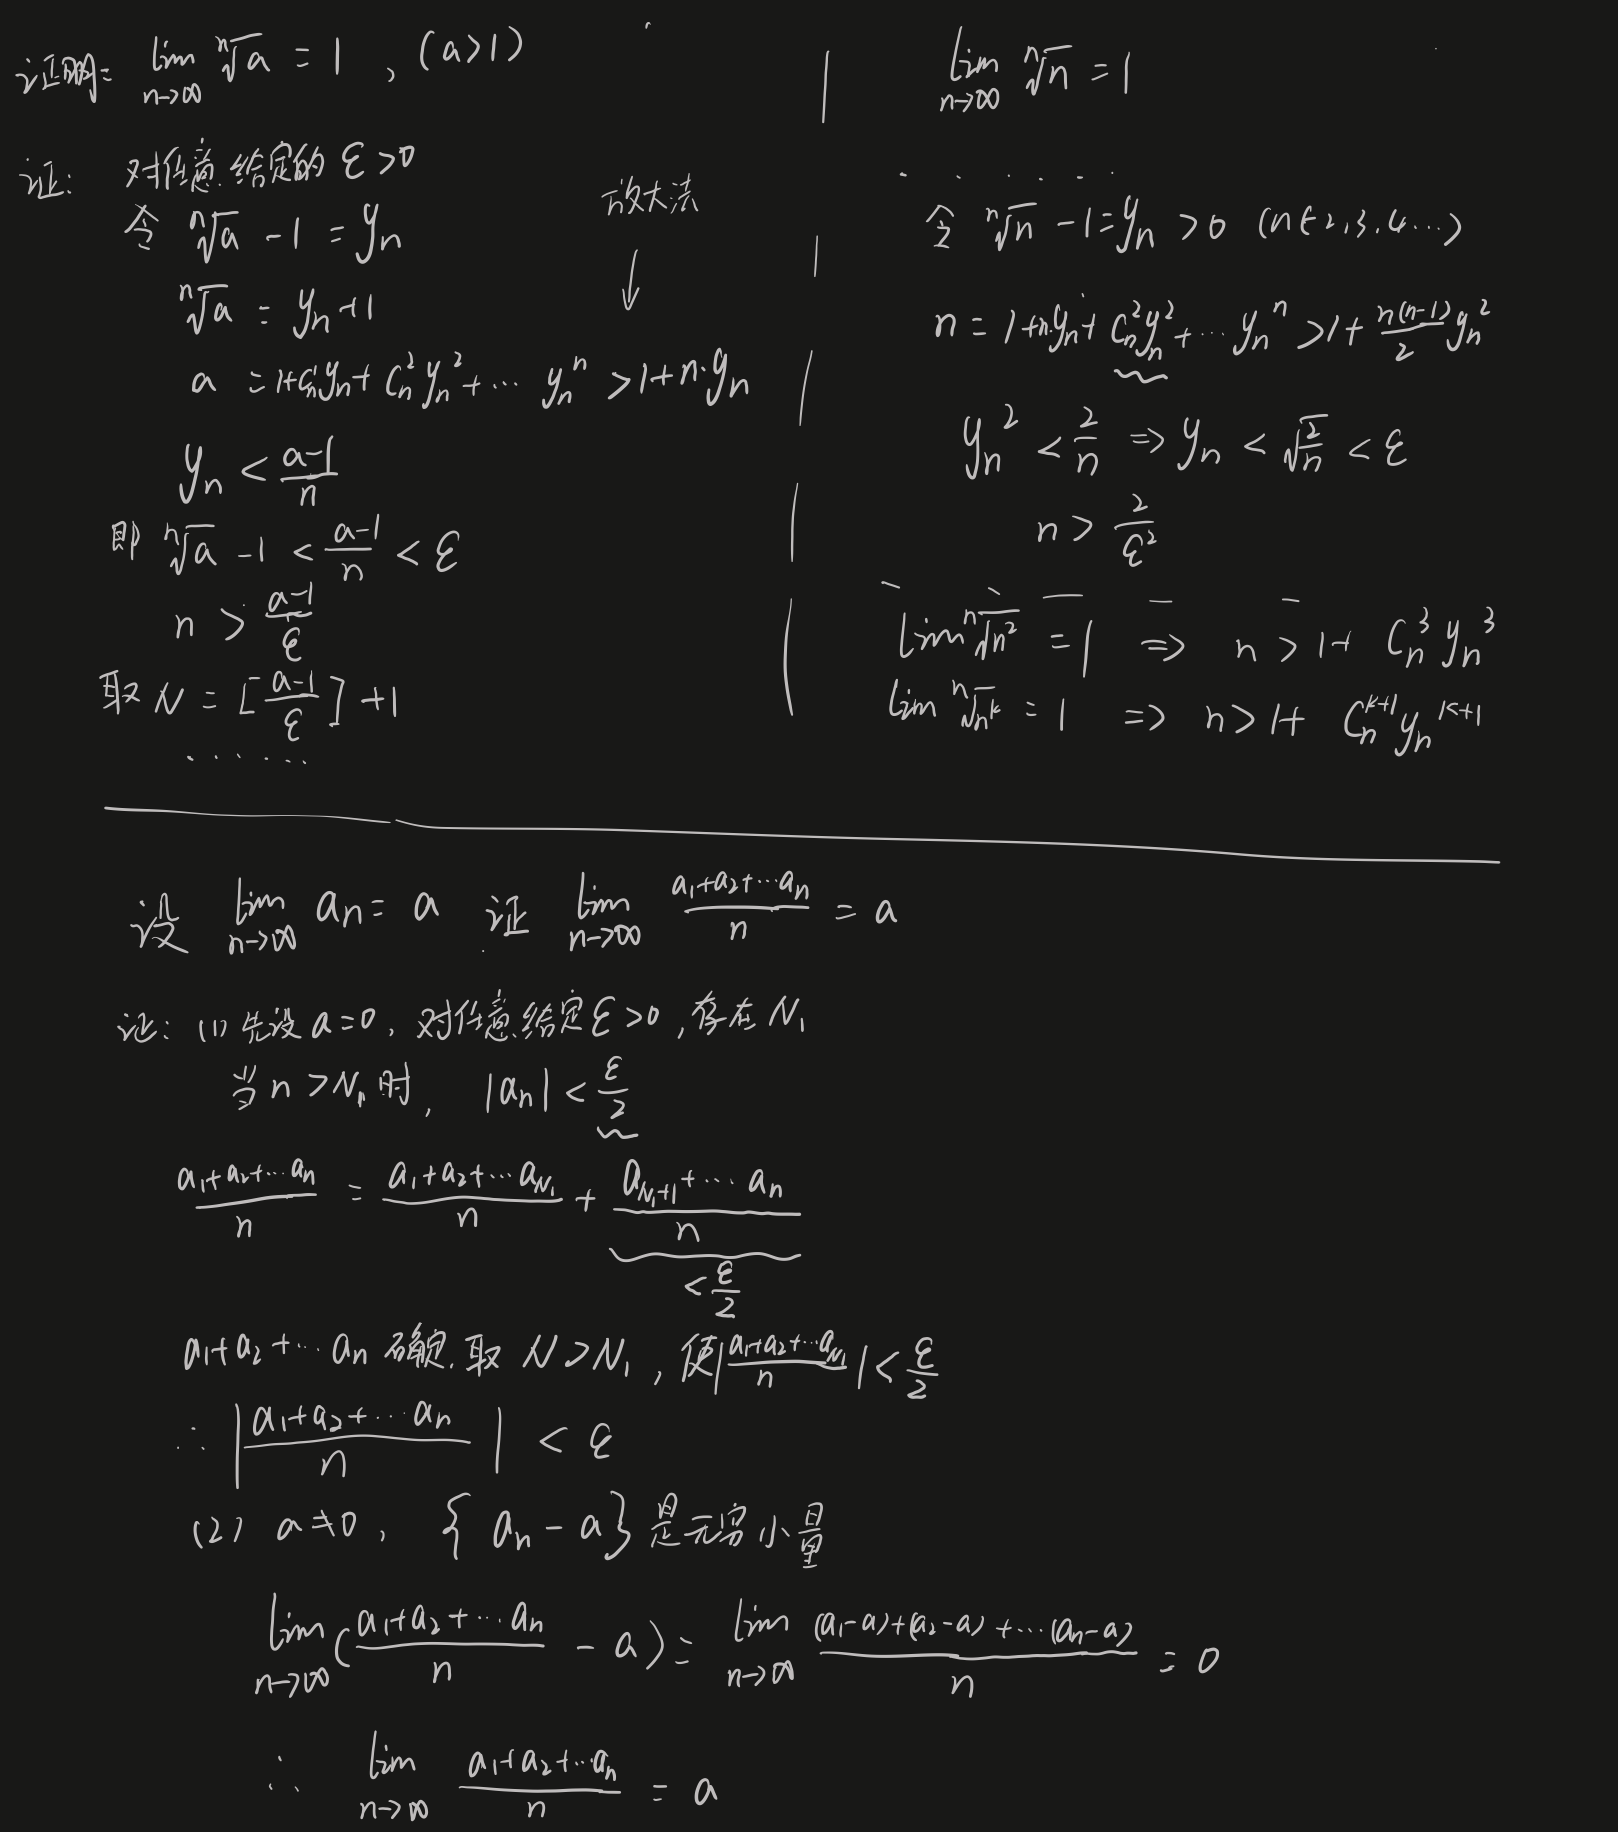 证明: lim_{n→∞} ⁿ√a = 1 , (a>1)
证: 对任意给定的 ε>0
令 ⁿ√a - 1 = yₙ
ⁿ√a = yₙ+1
放大法
↓
a = 1+Cₙ¹yₙ+Cₙ²yₙ²+⋯ yₙⁿ > 1+n·yₙ
yₙ < (a-1)/n
即 ⁿ√a - 1 < (a-1)/n < ε
n > (a-1)/ε
取 N = [(a-1)/ε]+1
······
lim_{n→∞} ⁿ√n = 1
······
令 ⁿ√n - 1 = yₙ > 0 (n∈2,3,4…)
n = 1+n·yₙ+Cₙ²yₙ²+⋯ yₙⁿ > 1+ n(n-1)/2 yₙ²
yₙ² < 2/n ⇒ yₙ < √(2/n) < ε
n > 2/ε²
lim ⁿ√n² = 1 ⇒ n > 1+ Cₙ³yₙ³
lim ⁿ√nᵏ = 1 ⇒ n > 1+ Cₙᵏ⁺¹yₙᵏ⁺¹
设 lim_{n→∞} aₙ = a 证 lim_{n→∞} (a₁+a₂+⋯aₙ)/n = a
证: (1) 先设 a=0, 对任意给定 ε>0, 存在 N₁
当 n>N₁ 时, |aₙ| < ε/2
(a₁+a₂+⋯aₙ)/n = (a₁+a₂+⋯a_{N₁})/n + (a_{N₁+1}+⋯aₙ)/n
< ε/2
a₁+a₂+⋯aₙ 确定, 取 N>N₁, 使|(a₁+a₂+⋯a_{N₁})/n| < ε/2
∴ |(a₁+a₂+⋯aₙ)/n| < ε
(2) a≠0, {aₙ-a} 是无穷小量
lim_{n→∞} ((a₁+a₂+⋯aₙ)/n - a) = lim_{n→∞} ((a₁-a)+(a₂-a)+⋯(aₙ-a))/n = 0
∴ lim_{n→∞} (a₁+a₂+⋯aₙ)/n = a